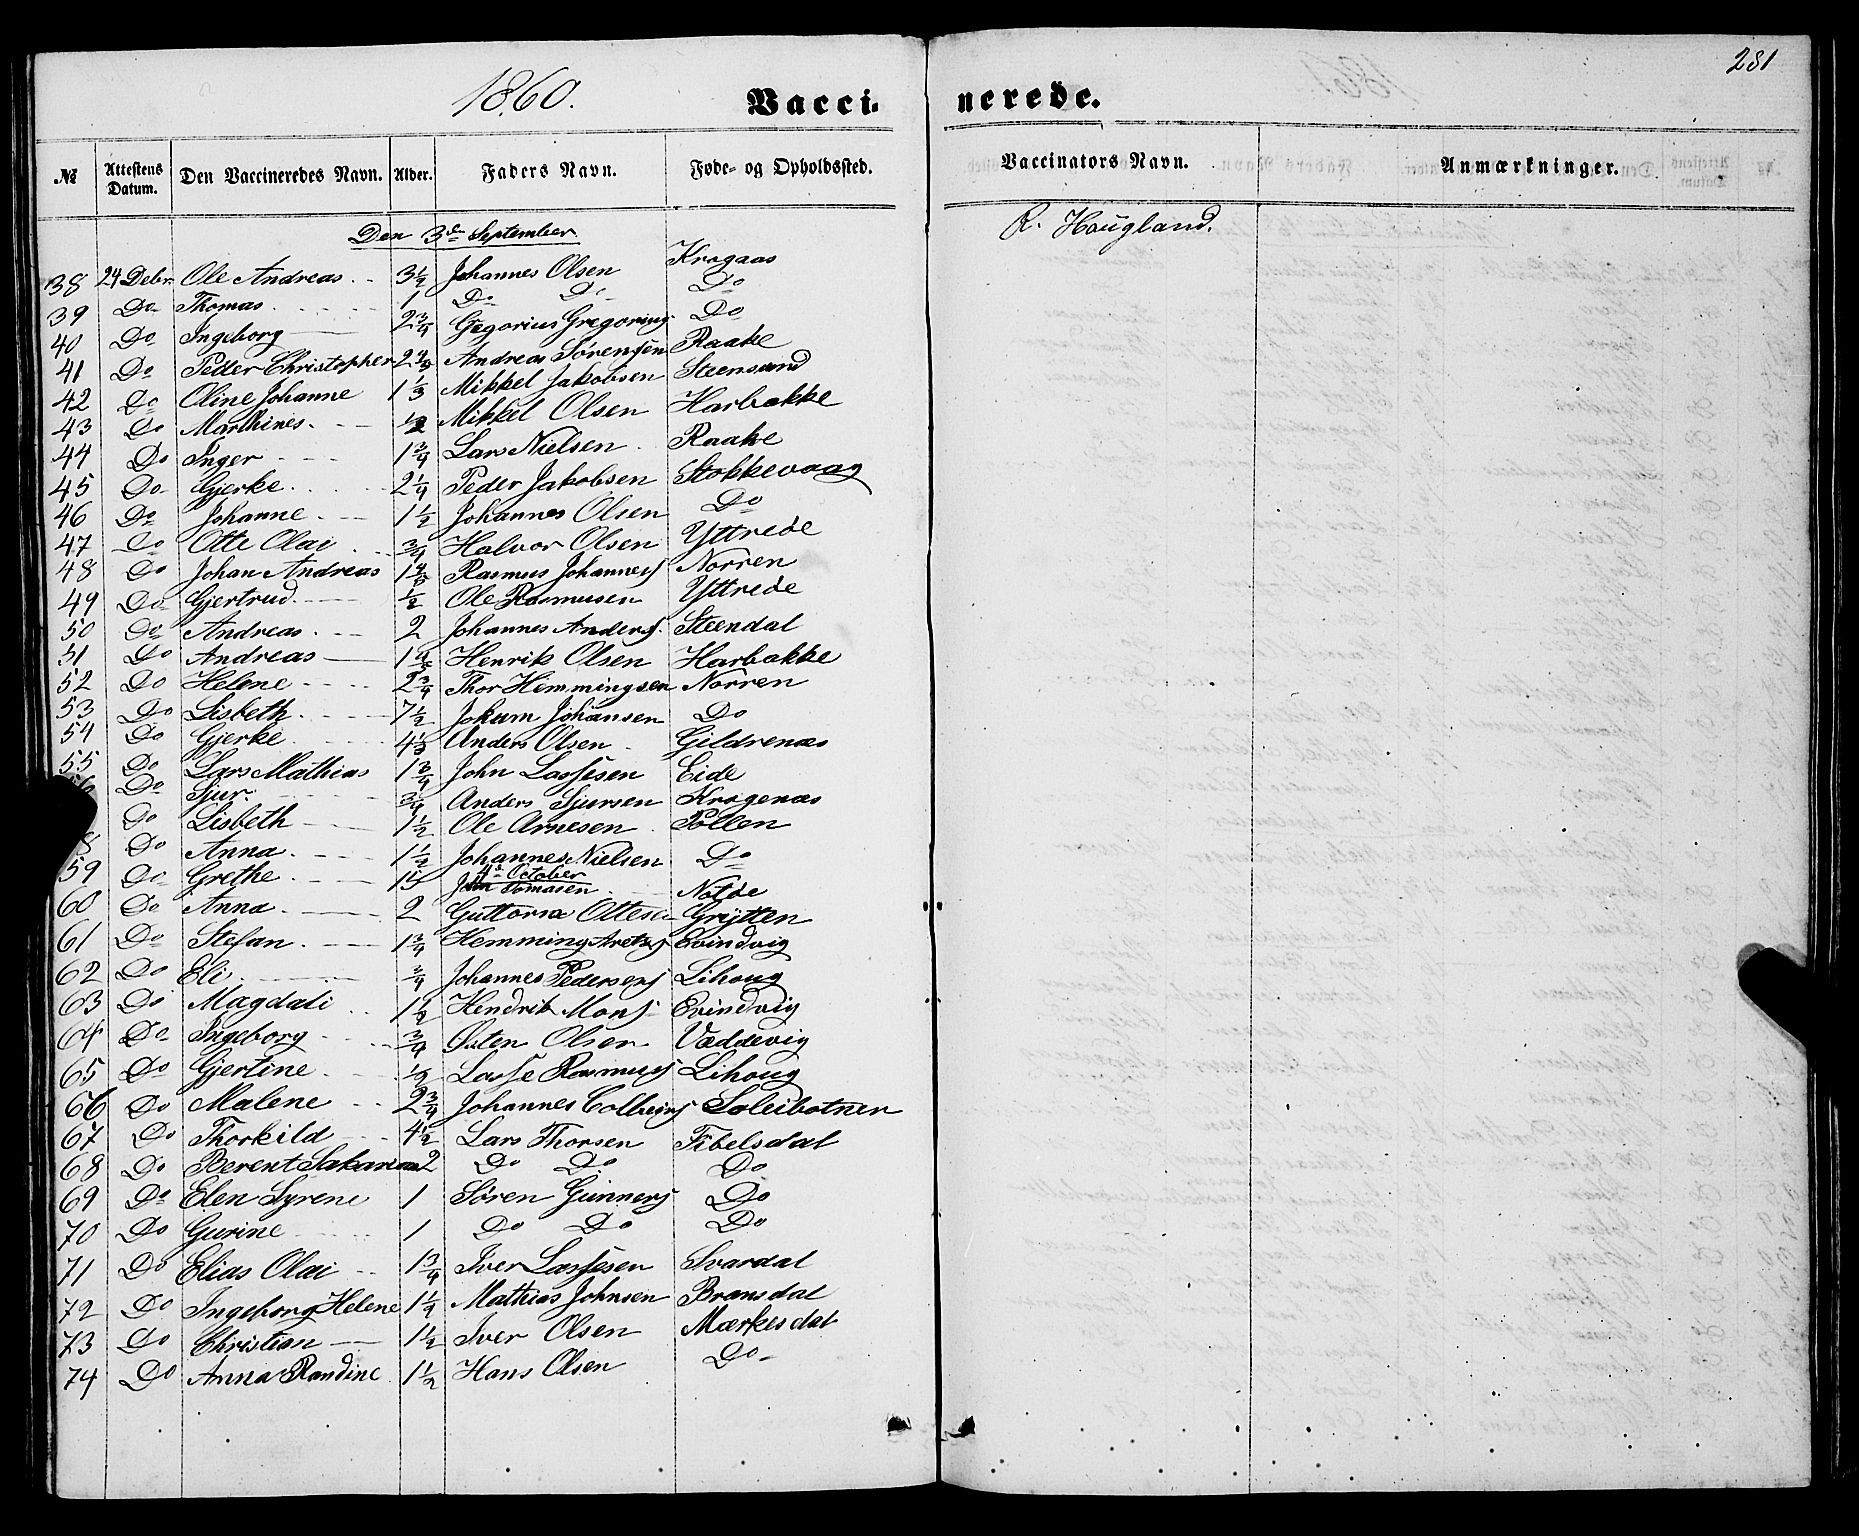 281
1860.
Vaccinerede.
№ Attestens Datum. Den Vaccineredes Navn. Alder. Faders Navn. Føde- og Opholdssted. Vaccinators Navn. Anmærkninger.
Den 3de September R. Haugland.
38 24 Debr. Ole Andreas 3½ Johannes Olsen Kragaas
39 Do Thomas 1 Do Do Do
40 Do Ingeborg 2¾ Gegorius Gregorius Do
41 Do Peder Christopher 2¾ Andreas Sørensen Raake
42 Do Oline Johanne 1⅓ Mikkel Jakobsen Steensund
43 Do Marthines ½ Mikkel Olsen Harbakke
44 Do Inger 1¾ Lars Nielsen Raake
45 Do Gjerke 2¼ Peder Jakobsen Stokkevaag
46 Do Johanne 1½ Johannes Olsen Do
47 Do Otte Olai ¾ Halvor Olsen Yttrede
48 Do Johan Andreas 1 Rasmus Johannes Norren
49 Do Gjertrud ½ Ole Rasmusen Yttrede
50 Do Andreas 2 Johannes Anders Steendal
51 Do Andreas 1 Henrik Olsen Harbakke
52 Do Helene 2¾ Thor Hemmingsen Norren
53 Do Lisbeth 7½ Jokum Johansen Do
54 Do Gjerke 4 Anders Olsen Gildrenæs
55 Do Lars Mathias 1¾ John Lassesen Eide
Do Sjur ¾ Anders Sjursen Kragenæs
Do Lisbeth 1½ Ole Arnesen Pollen
8 Do Anna 1½ Johannes Nielsen Do
4de October
59 Do Grethe 15 John Tomasen Notde
60 Do Anna 2 Guttorm Ottesen Grytten
61 Do Stefan 1¾ Hemming Evindvig
62 Do Eli ¾ Johannes Peders Lihoug
63 Do Magdali 1½ Hendrik Mons Evindvig
64 Do Ingeborg ¾ Østen Olsen Væddevig
65 Do Gjertine ½ Lasse Rasmus Lihoug
66 Do Malene 2¾ Johannes Colbeins Soleibotnen
67 Do Thorkild 4½ Lars Thorsen Fibelsdal
68 Do Berent Sakarias 2 Do Do Do
69 Do Elen Syrene 1 Søren Gunners Do
70 Do Gurine 1 Do Do Do
71 Do Elias Olai 1¾ Iver Lassesen Svardal
72 Do Ingeborg Helene 1¼ Mathias Johnsen Bransdal
73 Do Christian 1½ Iver Olsen Mærkesdal
74 Do Anna Randine 1½ Hans Olsen Do